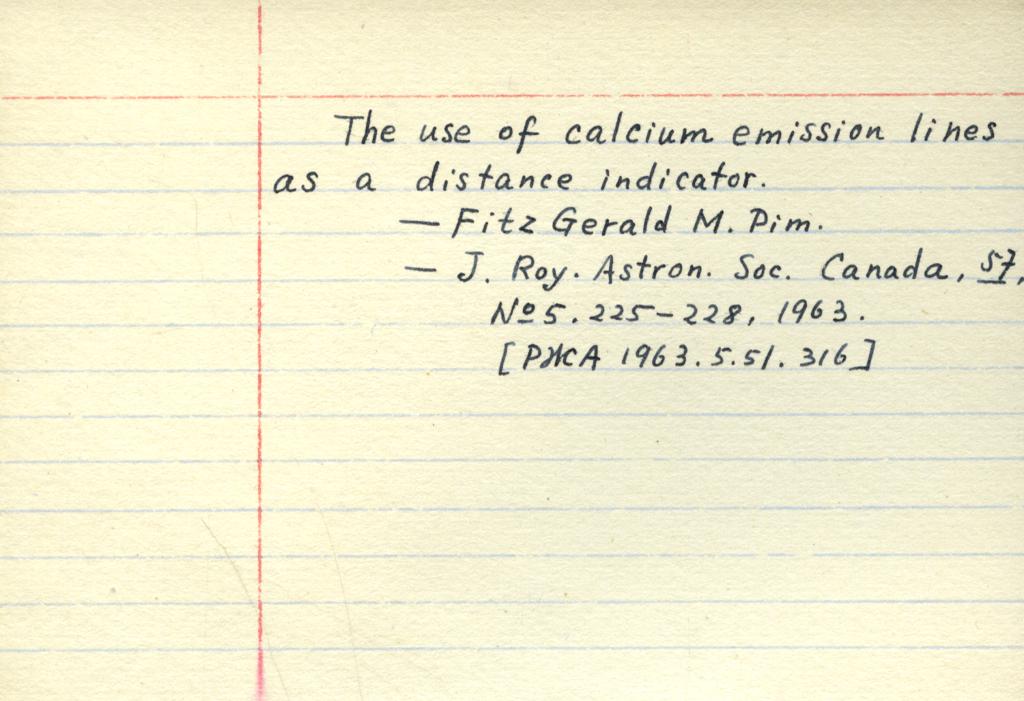 The use of calcium emission lines
as a distance indicator.
— Fitz Gerald M. Pim.
— J. Roy. Astron. Soc. Canada, 57,
№ 5. 225–228, 1963.
[РЖА 1963.5.51.316]